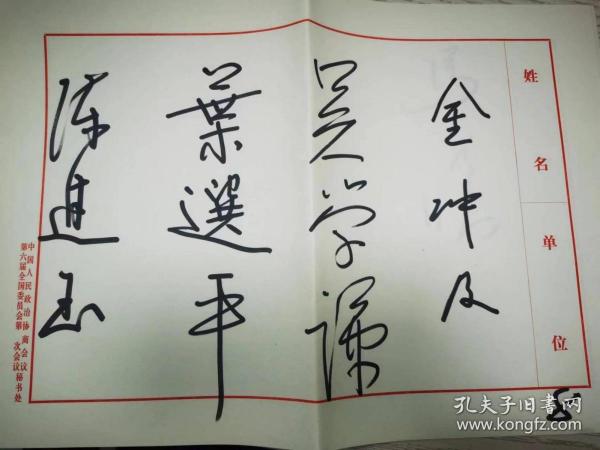 姓名 单位
金冲及
吴学谦
葉選平
陈进玉
中国人民政治协商会议
第六届全国委员会第 次会议秘书处
孔夫子旧书网
www.kongfz.com